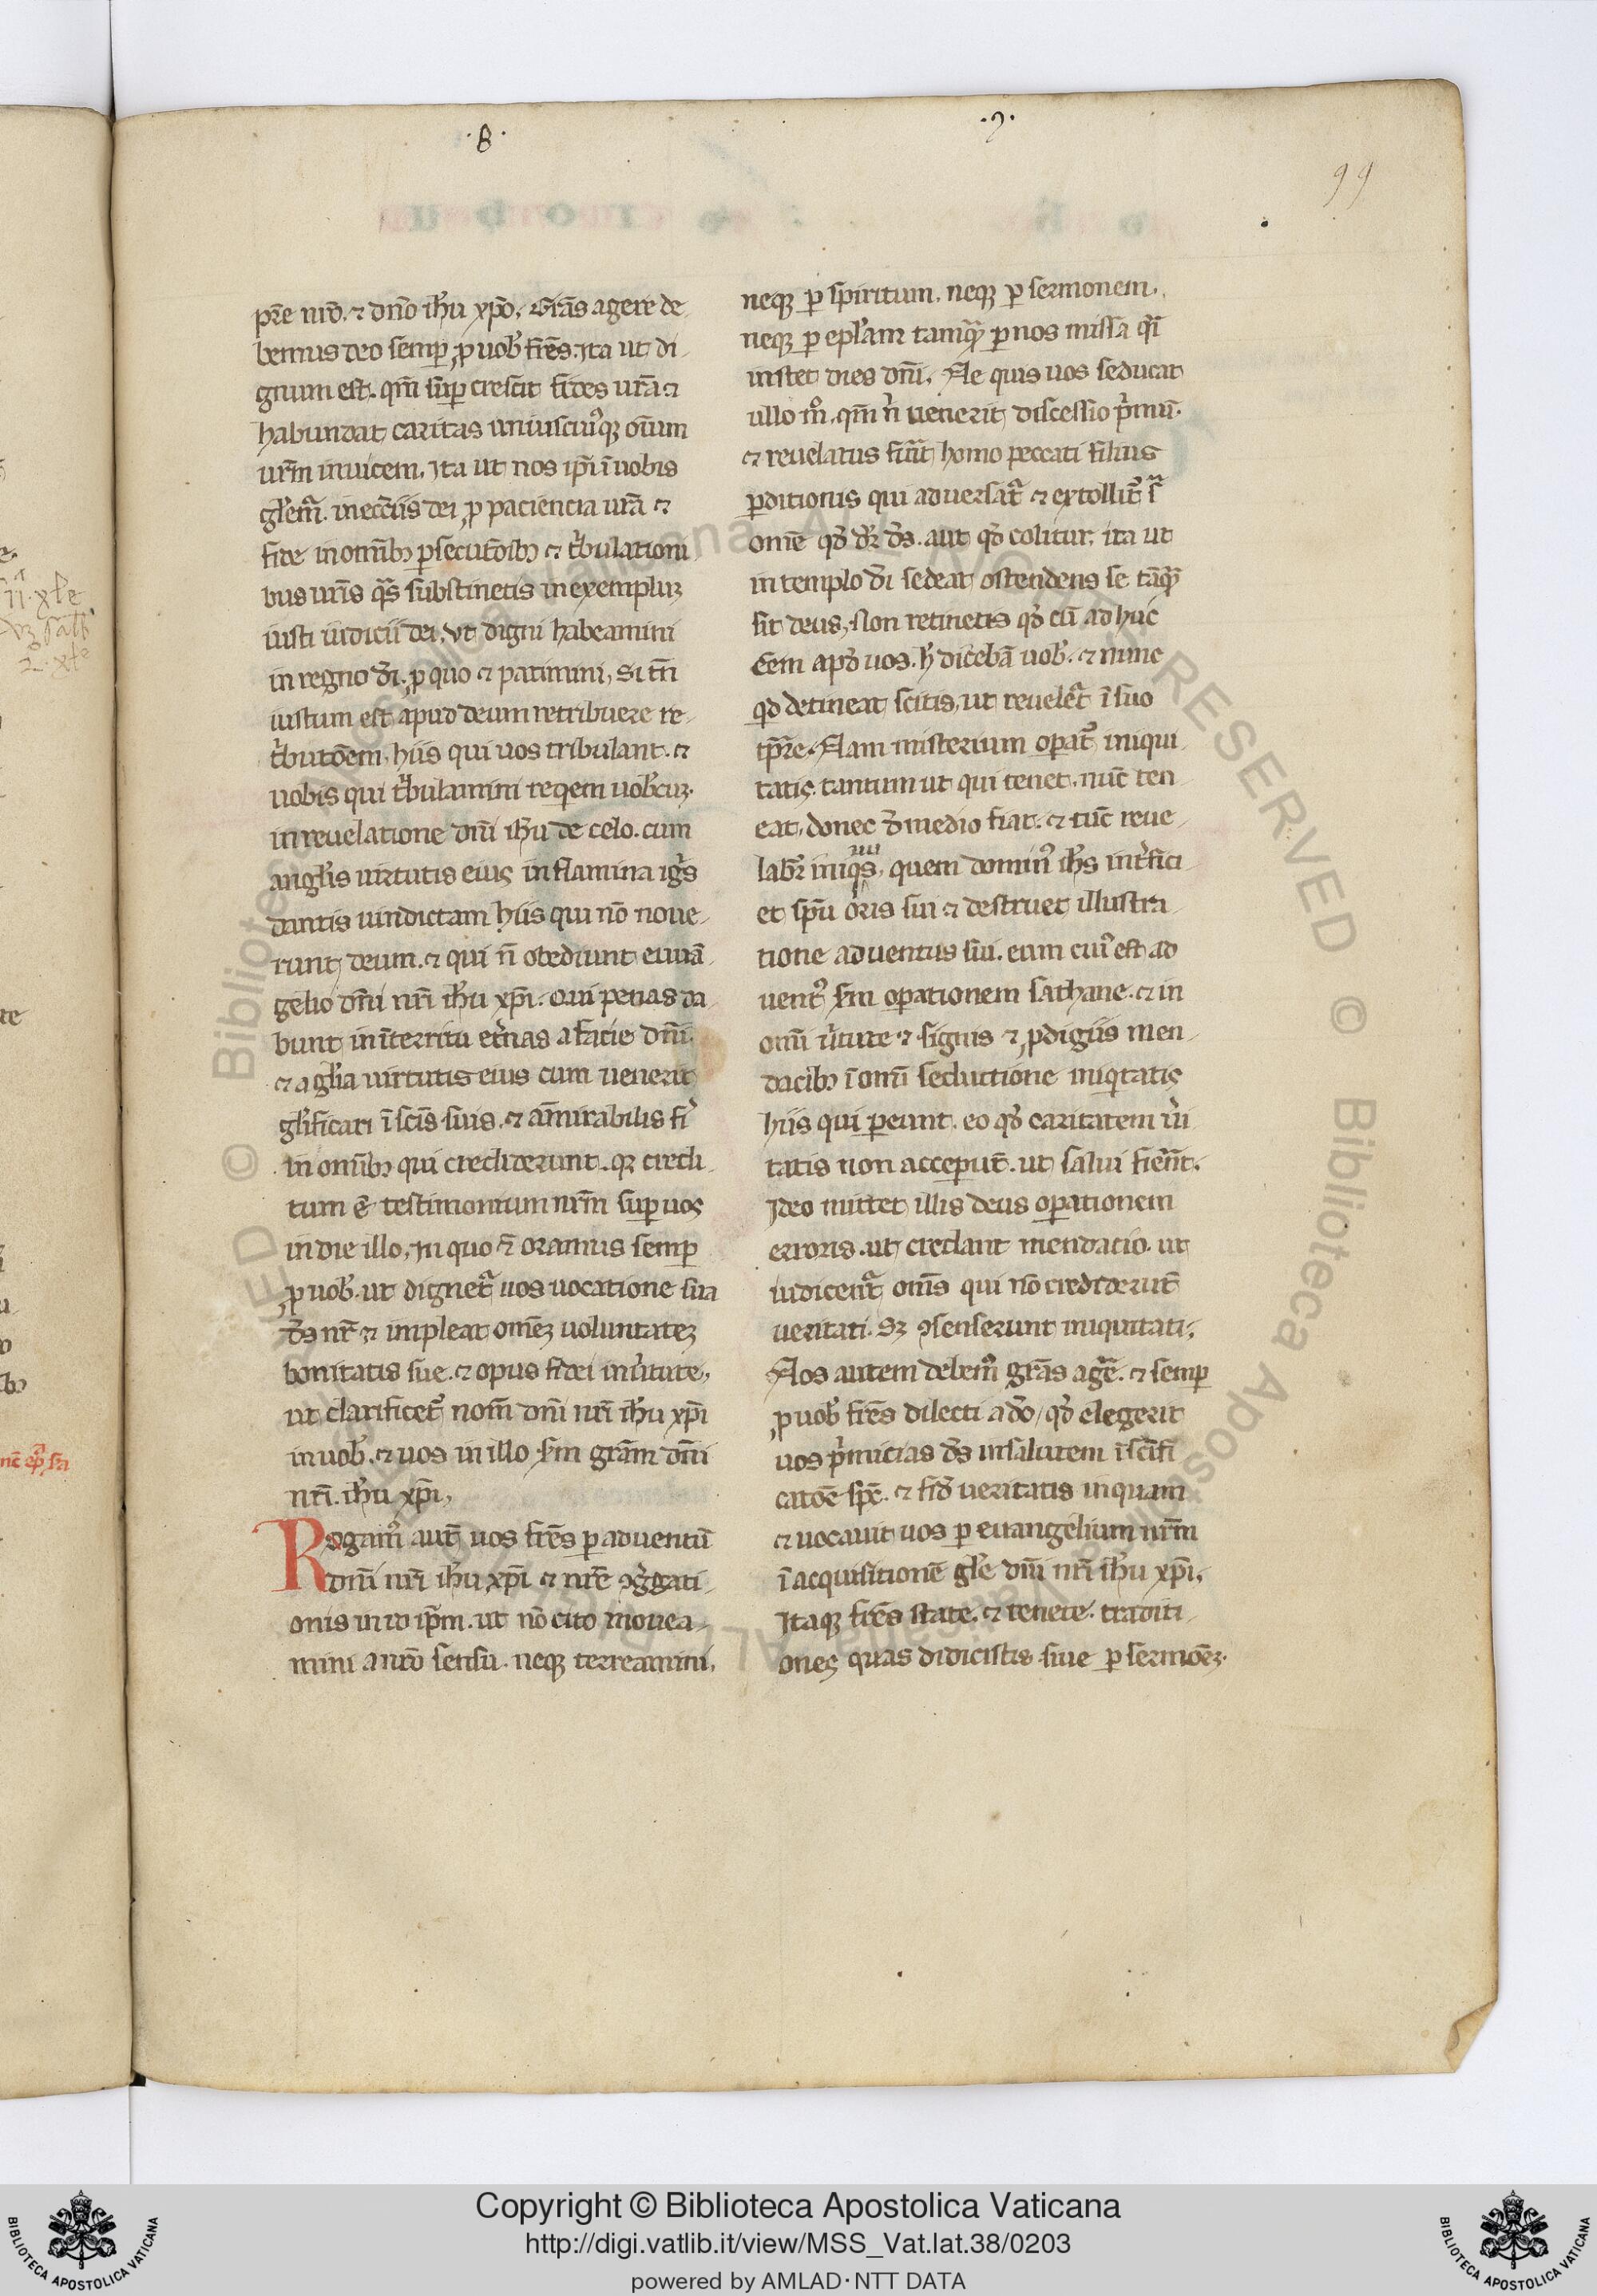 .8.
.9.
99
pr̄e nr̄o. ⁊ dn̄o ih̄u xp̄o. Grās agere de
bemus deo semp̱ ꝓ uob̄ fr̄es. Ita ut di
gnum est. qm̄ sup̱ crescit fides ur̄a ⁊
habundat caritas uniuscuiꝰqꝫ om̄um
ur̄m inuicem. Ita ut nos ip̄i ī uobis
gl̄em̄. in ecc̄iis dei ꝓ paciencia ur̄a ⁊
fide in om̄ibꝫ p̱secut̄oībꝫ ⁊ t̄bulationi
bus ur̄is q̄s substinetis in exempluꝫ
iusti iudicii dei. ut digni habeamini
in regno d̄i. ꝓ quo ⁊ patimini, Si tn̄
iustum est apud deum retribuere re
t̄butōem. hiis qui uos tribulant. ⁊
uobis qui t̄bulamini reqem uob̄cuꝫ.
in reuelatione dn̄i ih̄u de celo. cum
angl̄is uirtutis eius in flamma iḡs
dantis uindictam hiis qui nō noue
runt deum. ⁊ qui n̄ obediunt euuā
gelio dn̄i nr̄i ih̄u xp̄i. Qui penas da
bunt in īterritu et̄nas a facie dn̄i.
⁊ a gl̄ia uirtutis eius cum uenerit
gl̄ificari ī sc̄is suis. ⁊ am̄irabilis fi̾
in om̄ibꝫ qui crediderunt. qꝛ credi
tum ē testimonium nr̄m sup̱ uos
in die illo, In quo ē̄ oramus semp̱
ꝓ uob̄. ut dignet̄ uos uocatione sua
d̄s nr̄ ⁊ impleat om̄eꝫ uoluntateꝫ
bonitatis sue. ⁊ opus fidei in u̾tute,
ut clarificet̄ nom̄ dn̄i nr̄i ih̄u xp̄i
in uob̄. ⁊ uos in illo sm̄ grām dn̄i
nr̄i. ih̄u xp̄i,
Rogamꝰ aut̄ uos fr̄es p̱ aduentū
dn̄i nr̄i ih̄u xp̄i ⁊ nr̄e ꝯg̾gati
onis in id ip̄m. ut nō cito mouea
mini a ur̄o sensu. neqꝫ terreamini,
neqꝫ p̱ spiritum. neqꝫ p̱ sermonem.
neqꝫ p̱ epl̄am tamqᷓ p̱ nos missā q̄i
instet dies dn̄i. Ne quis uos seducat
ullo m̊. qm̄ n̄ uenerit discessio p̾mū.
⁊ reuelatus fu̾it homo peccati filius
p̱ditionis qui aduersat̄ ⁊ extollit̄ sᷓ
om̄e qd̄ dr̄ d̄s. aut qd̄ colitur. ita ut
in templo d̄i sedeat ostendens se tāqᷓ
sit deus, Non retinetis qd̄ cū adhuc
Eem apd̄ uos. h̾ dicebā uob̄. ⁊ nunc
qd detineat scitis, ut reuelet̄ ī suo
tp̄re. Nam misterium op̱at̄ iniqui
tatis. tantum ut qui tenet. nūc ten
eat. donec d̄ medio fiat. ⁊ tūc reue
labr̄ iniqͥs, quem dominꝰ ih̄s int̾fici
et sp̄u oris sui ⁊ destruet illustra
tione aduentus sui. eum cuiꝰ est ad
uentꝰ sm̄ op̱ationem sathane. ⁊ in
om̄i u̾tute ⁊ signis ⁊ ꝓdigiis men
dacibꝫ ī om̄i seductione iniqͥtatis
hiis qui p̱eunt. eo qd̄ caritatem u̾i
tatis non accep̱ūt. ut salui fie̾nt.
Ideo mittet illis deus op̱ationem
erroris. ut credant mendacio. ut
iudicent̄ om̄s qui nō crediderūt
ueritati. Sꝫ ꝯsenserunt iniquitati.
Nos autem debemꝰ grās ag̾e. ⁊ semp̱
ꝓ uob̄ fr̄es dilecti a d̄o / qd̄ elegerit
uos p̾micias d̄s in salutem ī sc̄ifi
catōe sp̄c. ⁊ fid̄ ueritatis in quam
⁊ uocauit uos p̱ euangelium nr̄m
ī acquisitionē gl̄e dn̄i nr̄i ih̄u xp̄i.
Itaqꝫ fr̄es state. ⁊ tenete. traditi
ones quas didicistis siue p̱ sermōeꝫ.
Copyright © Biblioteca Apostolica Vaticana
http://digi.vatlib.it/view/MSS_Vat.lat.38/0203
powered by AMLAD·NTT DATA